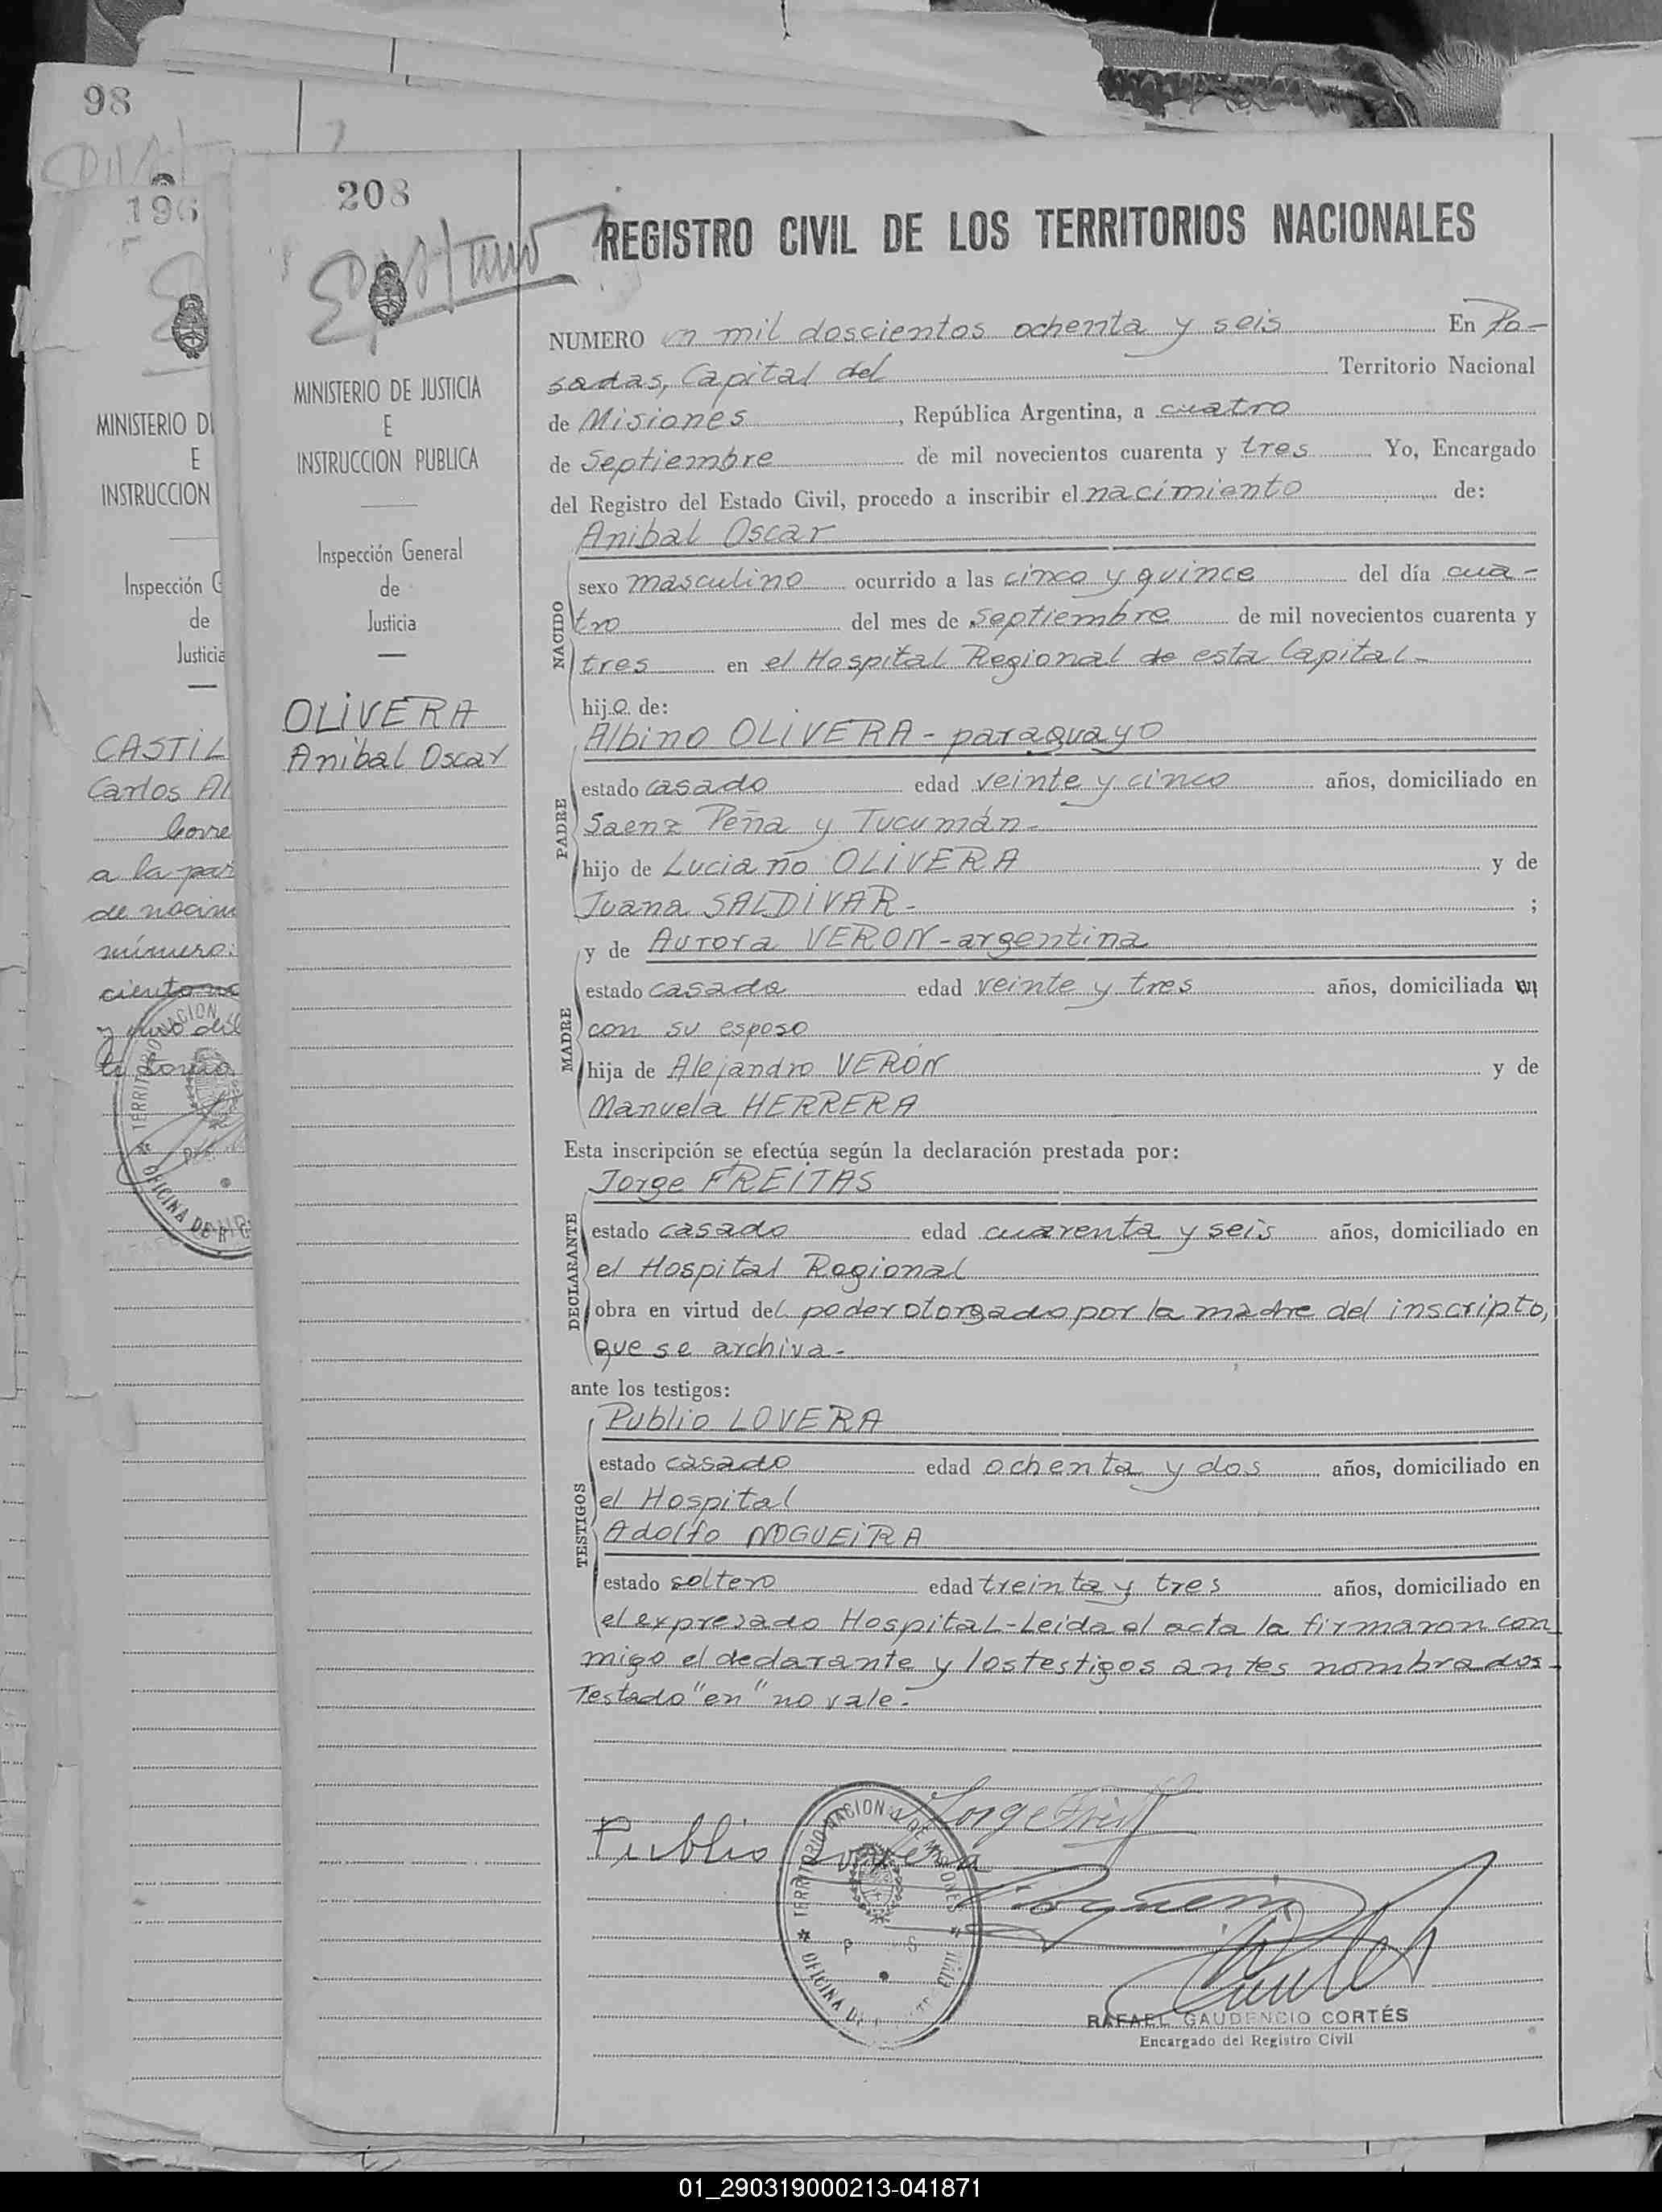 98
196
MINISTERIO DE
E
INSTRUCCION
Inspección G
de
Justicia
CASTIL
Carlos Al
a la par
de nacim
número:
ciento no
208
MINISTERIO DE JUSTICIA
E
INSTRUCCION PUBLICA
Inspección General
de
Justicia
OLIVERA
Anibal Oscar
REGISTRO CIVIL DE LOS TERRITORIOS NACIONALES
NUMERO un mil doscientos ochenta y seis En Po-
sadas, Capital del Territorio Nacional
de Misiones, República Argentina, a cuatro
de Septiembre de mil novecientos cuarenta y tres Yo, Encargado
del Registro del Estado Civil, procedo a inscribir el nacimiento de:
Anibal Oscar
NACIDO
sexo masculino ocurrido a las cinco y quince del día cua-
tro del mes de Septiembre de mil novecientos cuarenta y
tres en el Hospital Regional de esta Capital-
hijo de:
Albino OLIVERA - paraguayo
PADRE
estado casado edad veinte y cinco años, domiciliado en
Saenz Peña y Tucumán-
hijo de Luciano OLIVERA y de
Juana SALDIVAR- ;
y de Aurora VERON - argentina
MADRE
estado casada edad veinte y tres años, domiciliada en
con su esposo
hija de Alejandro VERÓN y de
Manuela HERRERA
Esta inscripción se efectúa según la declaración prestada por:
Jorge FREITAS
DECLARANTE
estado casado edad cuarenta y seis años, domiciliado en
el Hospital Regional
obra en virtud del poder otorgado por la madre del inscripto,
que se archiva-
ante los testigos:
Publio LOVERA
TESTIGOS
estado casado edad ochenta y dos años, domiciliado en
el Hospital
Adolfo NOGUEIRA
estado soltero edad treinta y tres años, domiciliado en
el expresado Hospital-Leida el acta la firmaron con
migo el declarante y los testigos antes nombrados-
Testado "en" no vale-
Jorge Freit
Publio Lovera
Nogueira
TERRITORIO NACIONAL DE MISIONES
OFICINA DE
RAFAEL GAUDENCIO CORTÉS
Encargado del Registro Civil
01_290319000213-041871